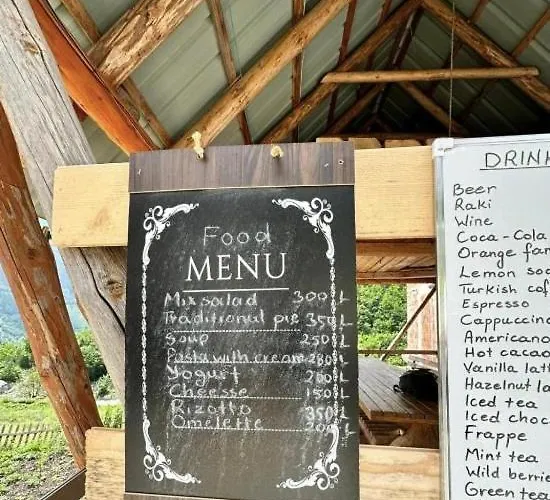 Food
MENU
Mix salad 300 L
Traditional pie 350 L
Soup 250 L
Pasta with cream 280 L
Yogurt 200 L
Cheesse 150 L
Rizotto 350 L
Omelette 200
DRINK
Beer
Raki
Wine
Coca-Cola
Orange fan
Lemon soo
Turkish cof
Espresso
Cappuccino
Americano
Hot cacao
Vanilla latt
Hazelnut la
Iced tea
Iced choc
Frappe
Mint tea
Wild berrie
Green tea